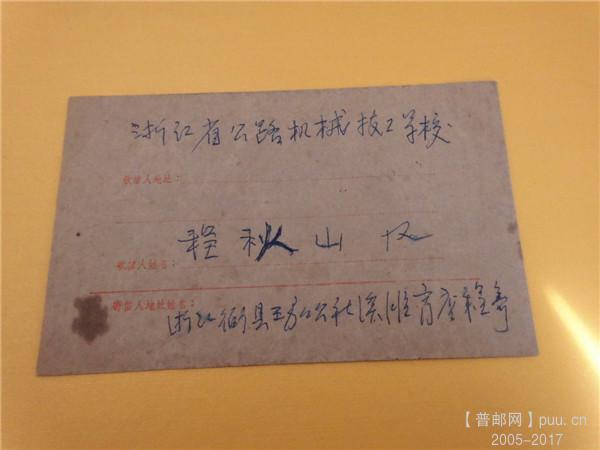 浙江省公路机械技工学校
收信人地址：
程秋山收
收信人姓名：
寄信人地址姓名：
浙江衢县 公社溪滩
【普邮网】puu.cn
2005-2017